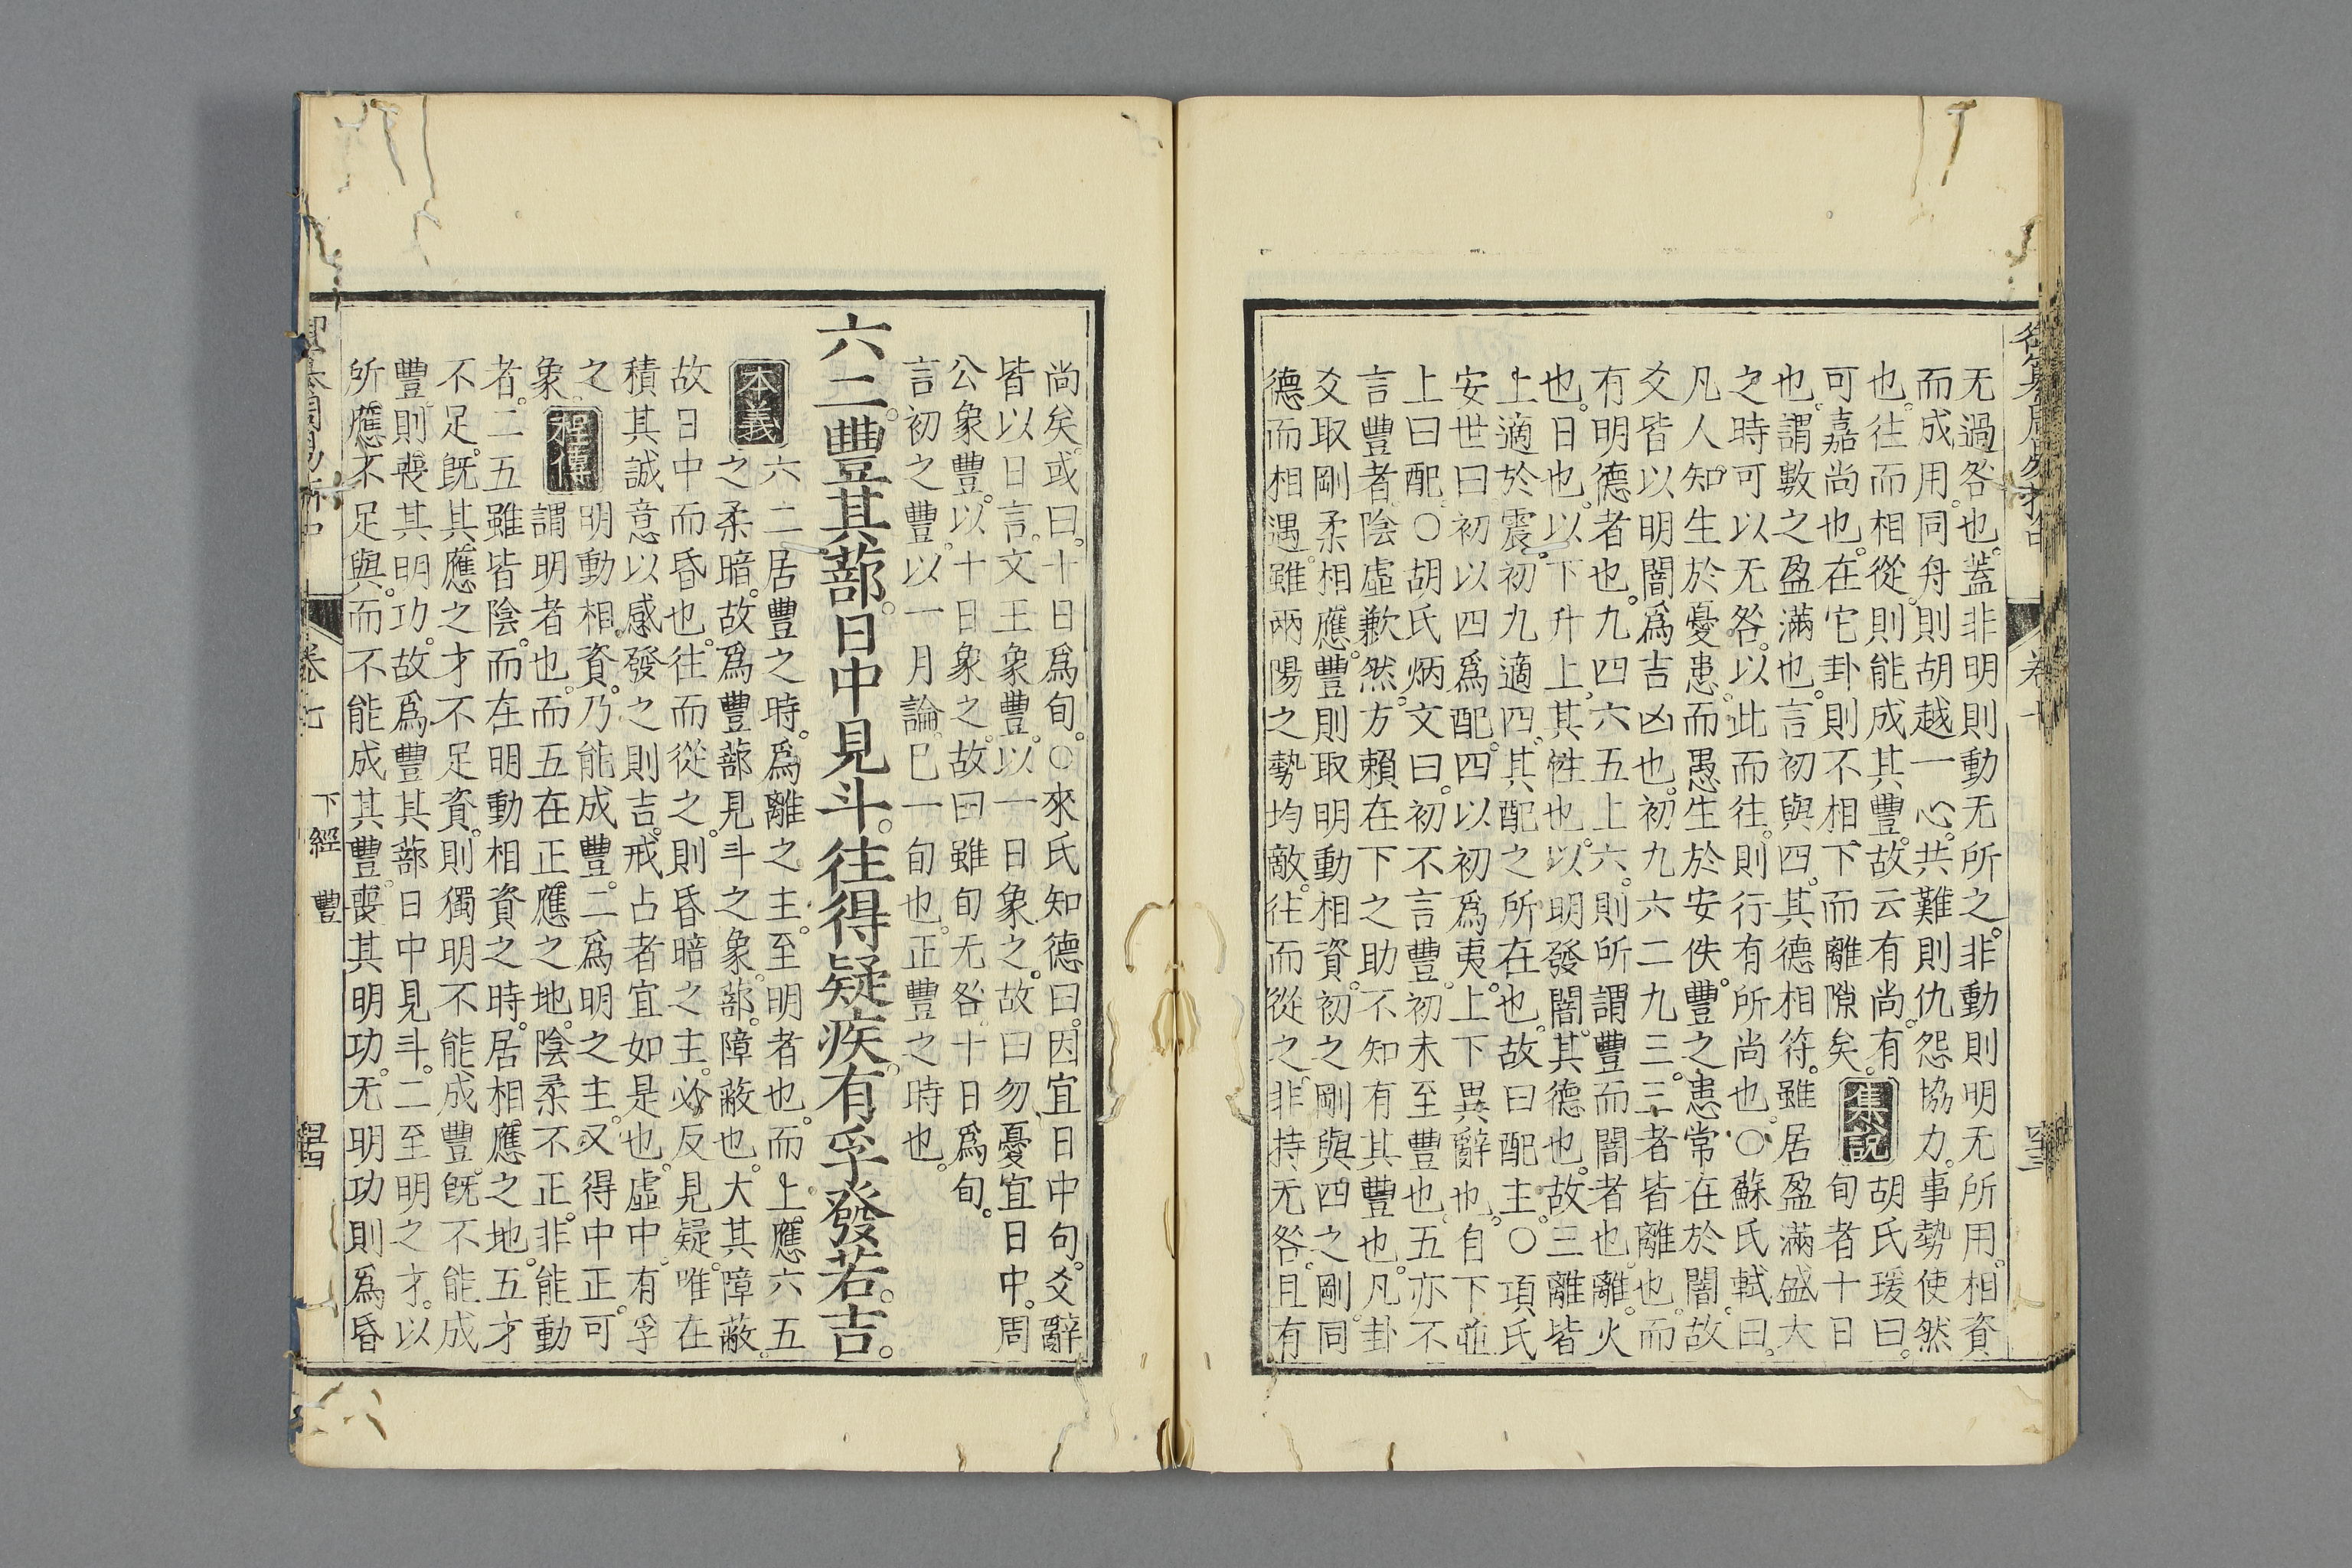 无過咎也。蓋非明則動无所之。非動則明无所用。相資
而成用。同舟則胡越一心。共難則仇怨協力。事勢使然
也。往而相從。則能成其豐。故云有尚。有
可嘉尚也。在它卦。則不相下而離隙矣。集說胡氏瑗曰。旬者十日
也。謂數之盈滿也。言初與四。其德相符。雖居盈滿盛大
之時。可以无咎。以此而往。則行有所尚也。○蘇氏軾曰。
凡人知生於憂患。而愚生於安佚。豐之患常在於闇。故
爻皆以明闇爲吉凶也。初九六二九三。三者皆離也。而
有明德者也。九四六五上六。則所謂豐而闇者也。離。火
也。日也。以下升上。其性也。以明發闇。其德也。故三離皆
上適於震。初九適四。其配之所在也。故曰配主。○項氏
安世曰。初以四爲配。四以初爲夷。上下異辭也。自下竝
上曰配。○胡氏炳文曰。初不言豐。初未至豐也。五亦不
言豐者。陰虛歉然。方賴在下之助。不知有其豐也。凡卦
爻取剛柔相應。豐則取明動相資。初之剛與四之剛。同
德而相遇。雖兩陽之勢均敵。往而從之。非持无咎。且有
尚矣。或曰。十日爲旬。○來氏知德曰。因宜日中句。爻辭
皆以日言。文王象豐。以一日象之。故曰勿憂宜日中。周
公象豐。以十日象之。故曰雖旬无咎。十日爲旬。
言初之豐。以一月論。已一旬也。正豐之時也。
六二。豐其蔀。日中見斗。往得疑疾。有孚發若。吉。
本義六二居豐之時。爲離之主。至明者也。而上應六五
之柔暗。故爲豐蔀見斗之象。蔀。障蔽也。大其障蔽。
故日中而昏也。往而從之。則昏暗之主。必反見疑。唯在
積其誠意以感發之則吉。戒占者宜如是也。虛中。有孚
之象。程傳明動相資。乃能成豐。二爲明之主。又得中正。可
謂明者也。而五在正應之地。陰柔不正。非能動
者。二五雖皆陰。而在明動相資之時。居相應之地。五才
不足。旣其應之才不足資。則獨明不能成豐。旣不能成
豐。則喪其明功。故爲豐其蔀日中見斗。二至明之才。以
所應不足與。而不能成其豐。喪其明功。无明功則爲昏
卷七
下經 豐